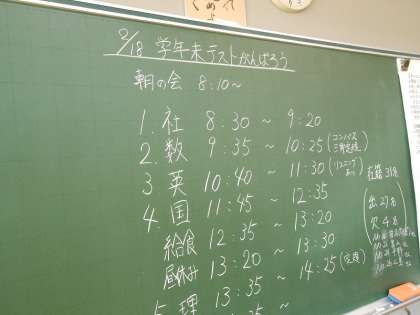 2/18 学年末テストがんばろう
朝の会 8:10~
1. 社 8:30 ~ 9:20
2. 数 9:35 ~ 10:25 (コンパス 三角定規)
3. 英 10:40 ~ 11:30 (リスニングあり)
4. 国 11:45 ~ 12:35
給食 12:35 ~ 13:20
昼休み 13:20 ~ 13:30
5. 理 13:35 ~ 14:25 (定規)
在籍 31名
出 27名
欠 4名